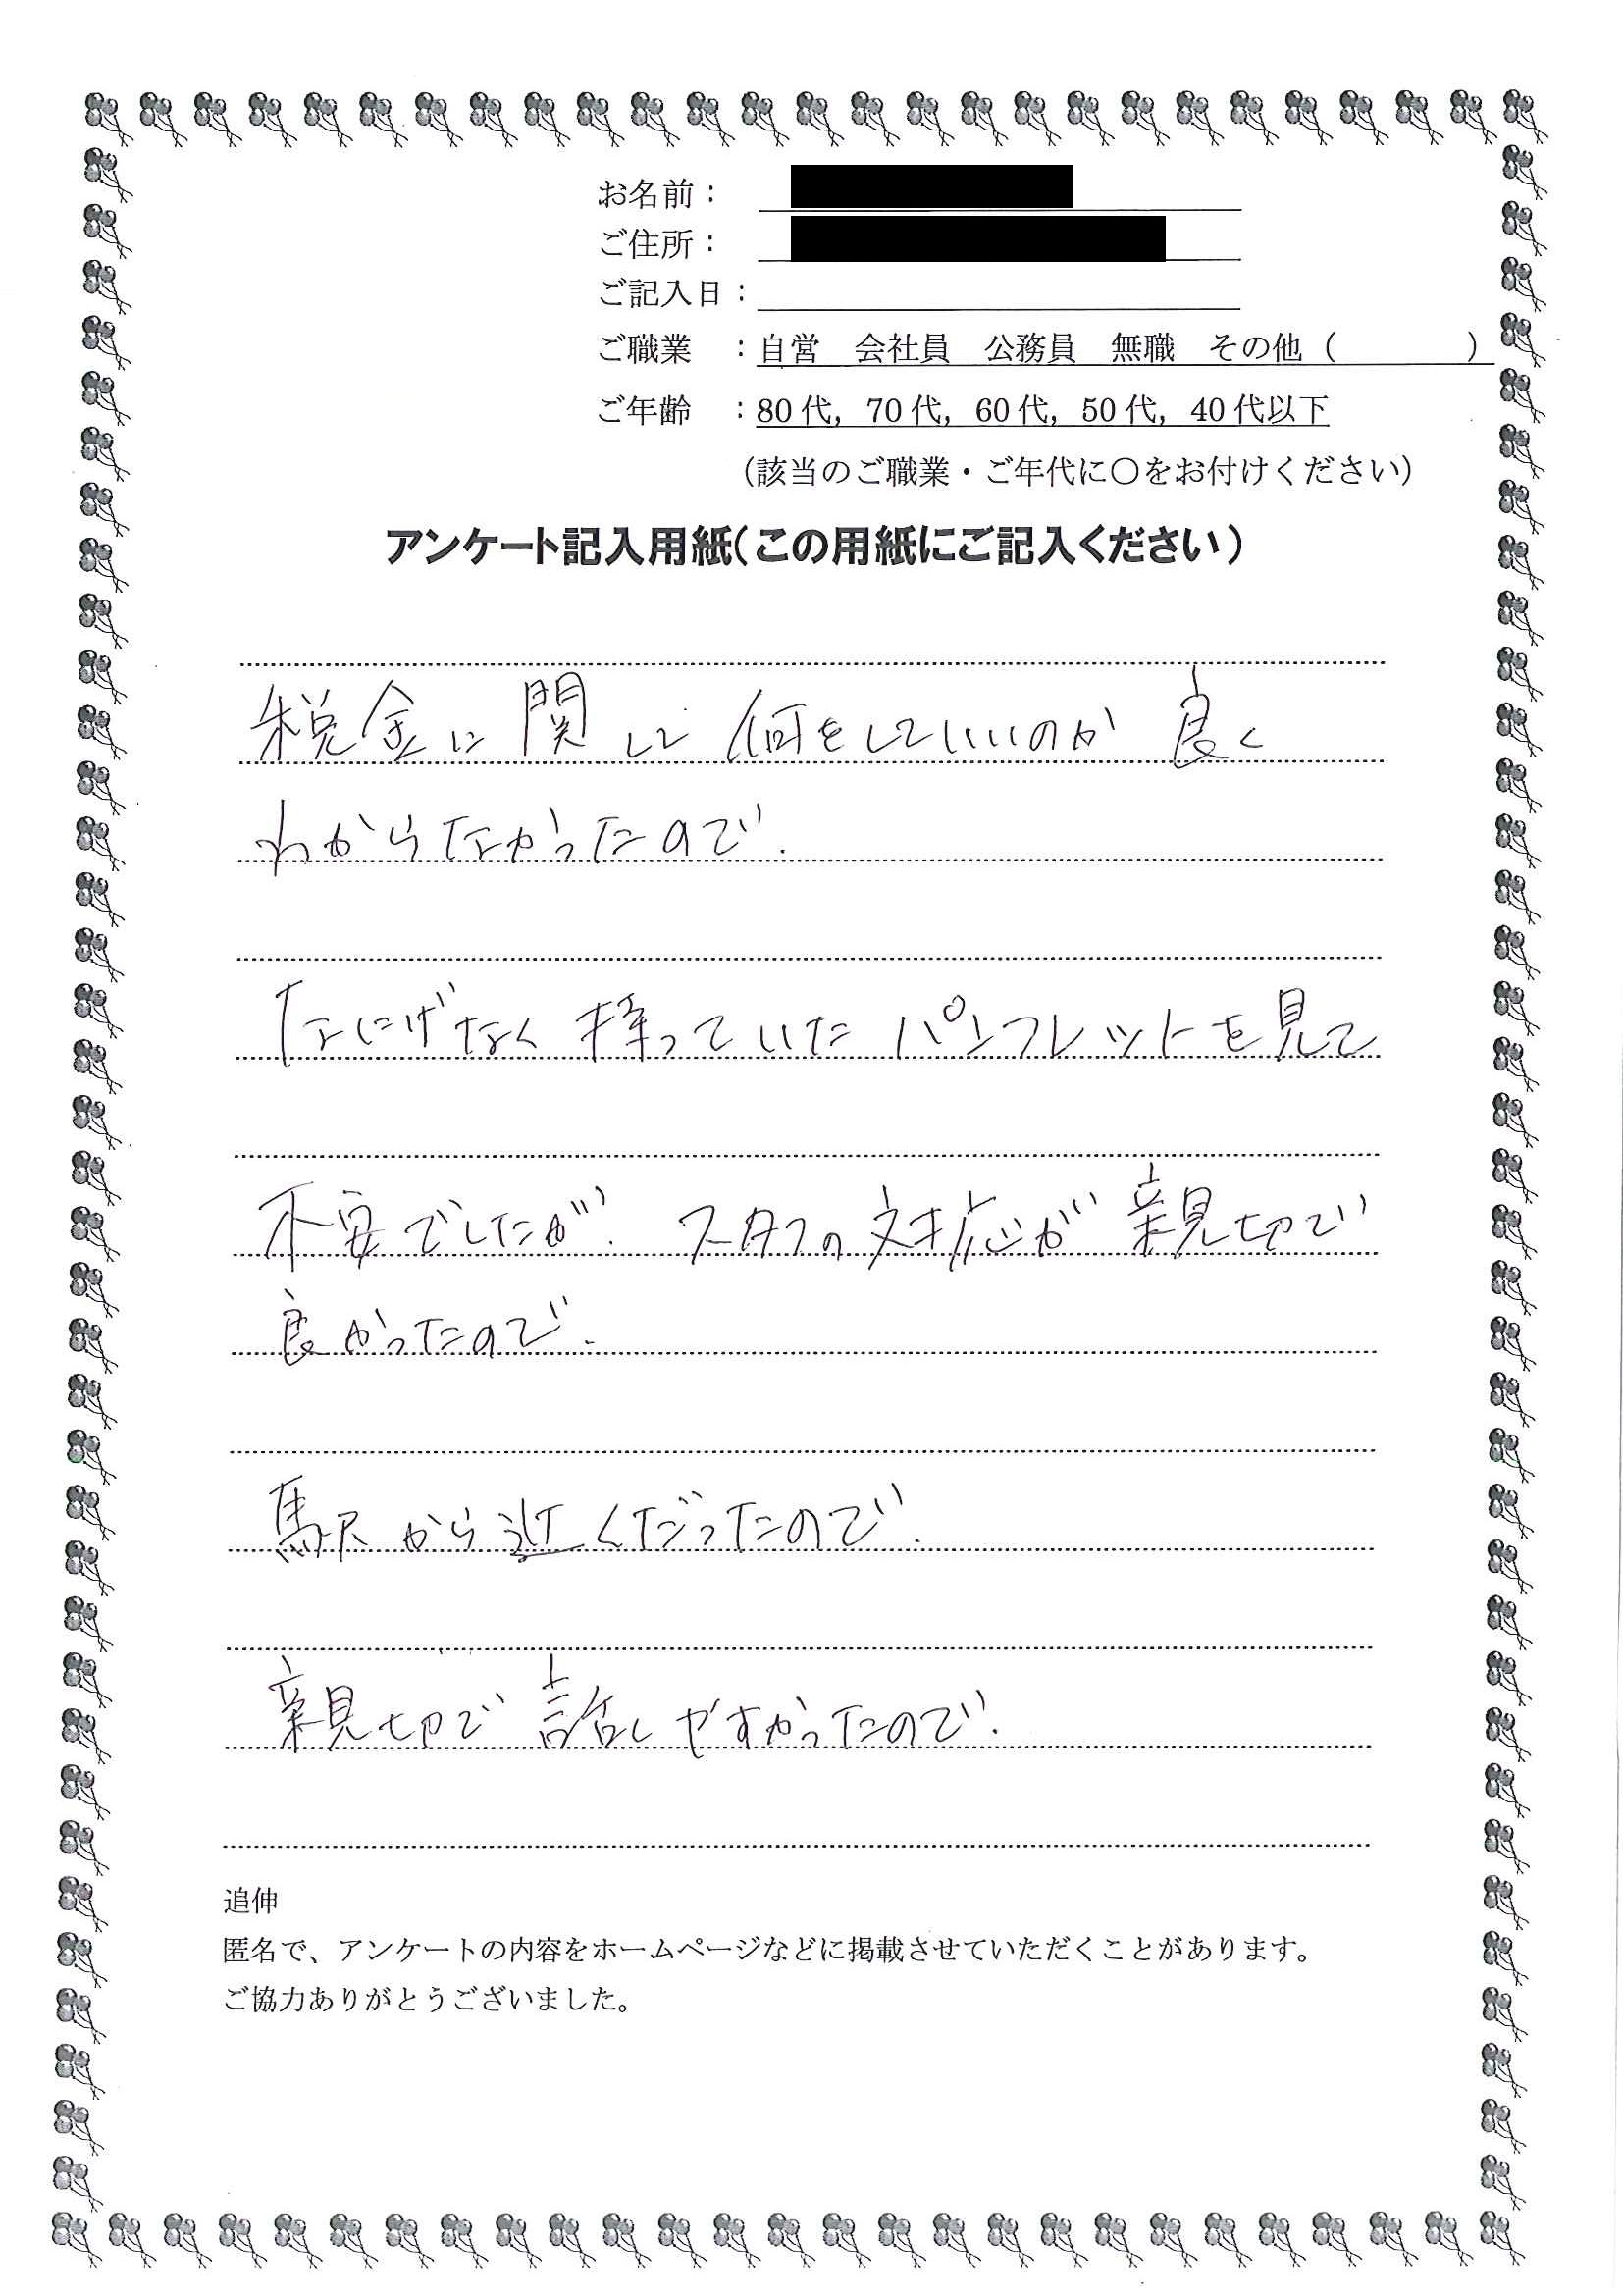 お名前：
ご住所：
ご記入日：
ご職業　：自営　会社員　公務員　無職　その他（　　　　）
ご年齢　：80代，70代，60代，50代，40代以下
（該当のご職業・ご年代に○をお付けください）
アンケート記入用紙（この用紙にご記入ください）
税金に関して何をしていいのか良く
わからなかったので.
なにげなく持っていたパンフレットを見て
不安でしたが.スタフの対応が親切で
良かったので.
駅から近くだったので.
親切で話しやすかったので.
追伸
匿名で、アンケートの内容をホームページなどに掲載させていただくことがあります。
ご協力ありがとうございました。